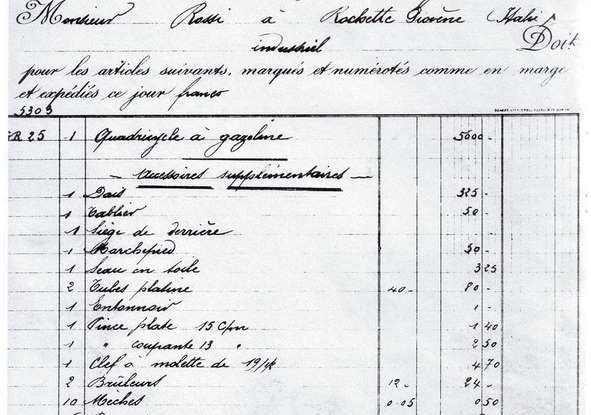 Monsieur Rossi à Rochette Piovène (Italie)
industriel
Doit
pour les articles suivants, marqués et numérotés comme en marge
et expédiés ce jour franco
5303
25 1 Quadricycle à gazoline 5000 -
- accessoires supplémentaires -
1 Dais 325 -
1 Tablier 50 -
1 Siège de derrière
1 Marchepied 50 -
1 Seau en toile 3 25
2 Tubes platine 40 - 80 -
1 Entonnoir 1 -
1 Pince plate 15 c/m 1 40
1 " coupante 13 " 2 50
1 Clef à molette de 4 70
2 Brûleurs 12 - 24 -
10 Mèches 0.05 0 50